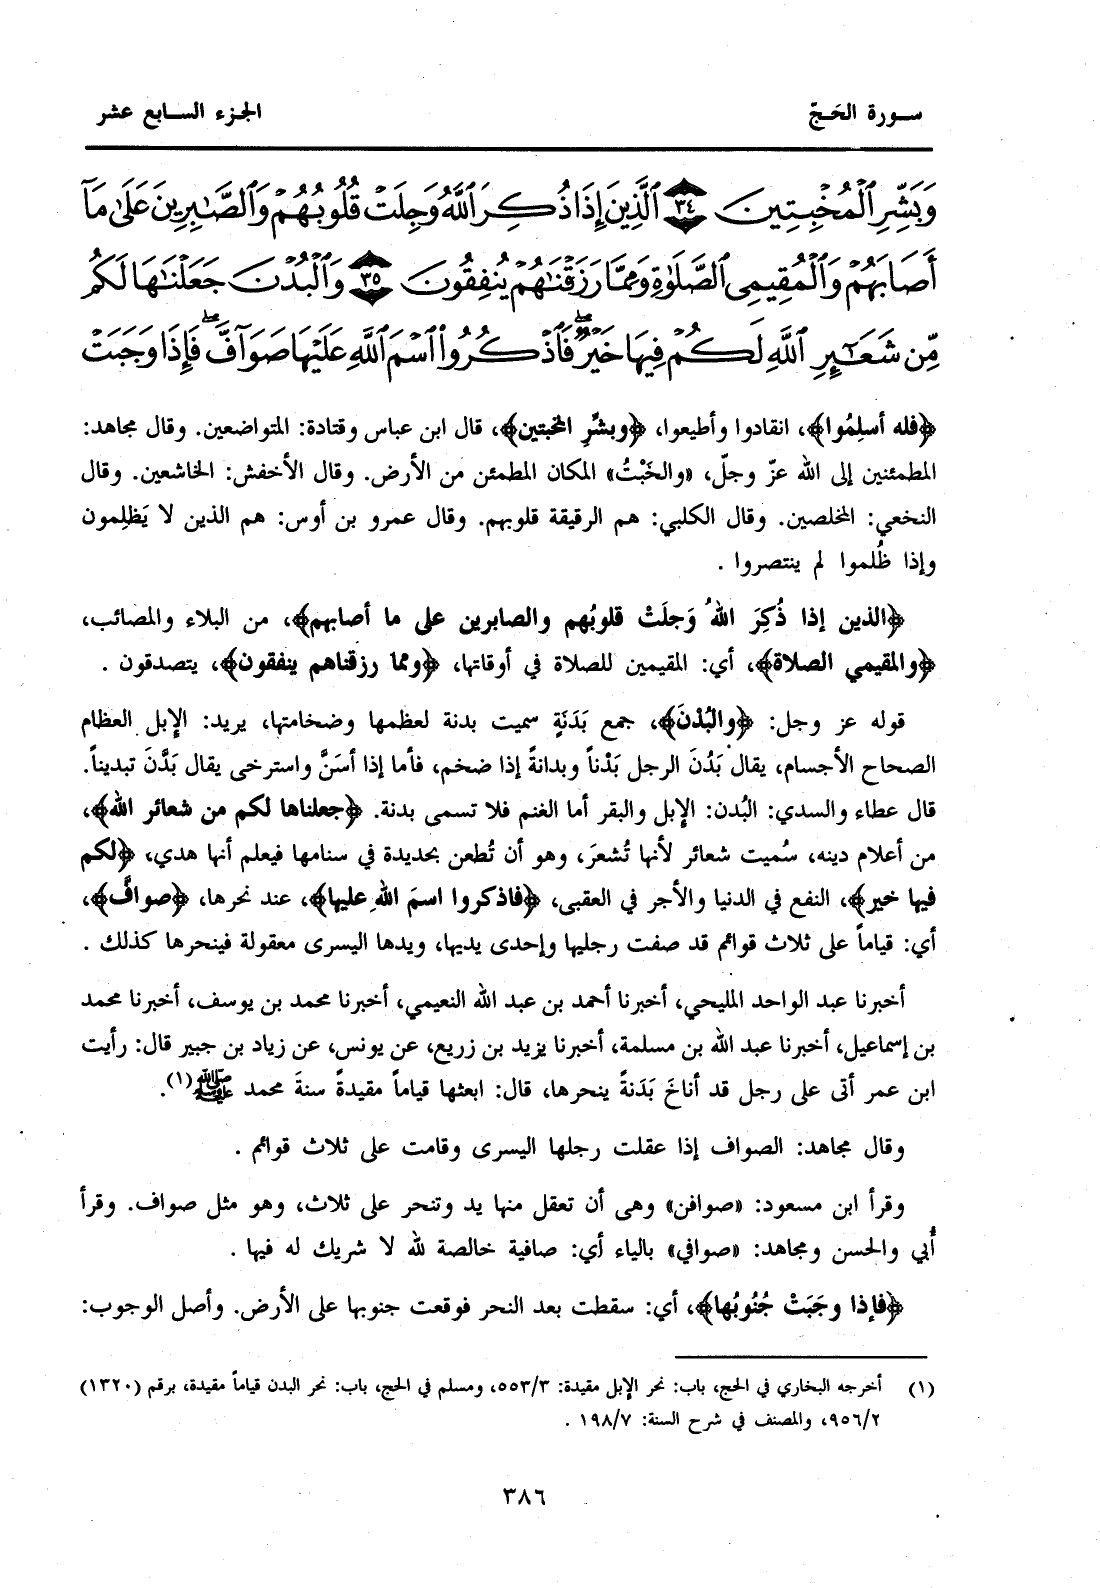 سورة الحَجّ
الجزء السابع عشر
وَبَشِّرِ ٱلْمُخْبِتِينَ ٣٤ ٱلَّذِينَ إِذَا ذُكِرَ ٱللَّهُ وَجِلَتْ قُلُوبُهُمْ وَٱلصَّٰبِرِينَ عَلَىٰ مَآ
أَصَابَهُمْ وَٱلْمُقِيمِى ٱلصَّلَوٰةِ وَمِمَّا رَزَقْنَٰهُمْ يُنفِقُونَ ٣٥ وَٱلْبُدْنَ جَعَلْنَٰهَا لَكُم
مِّن شَعَٰٓئِرِ ٱللَّهِ لَكُمْ فِيهَا خَيْرٌۖ فَٱذْكُرُوا۟ ٱسْمَ ٱللَّهِ عَلَيْهَا صَوَآفَّۖ فَإِذَا وَجَبَتْ
﴿فله أسلِمُوا﴾، انقادوا وأطيعوا، ﴿وبشِّرِ المخبتين﴾، قال ابن عباس وقتادة: المتواضعين. وقال مجاهد:
المطمئنين إلى الله عزّ وجلّ، «والخَبْتُ» المكان المطمئن من الأرض. وقال الأخفش: الخاشعين. وقال
النخعي: المخلصين. وقال الكلبي: هم الرقيقة قلوبهم. وقال عمرو بن أوس: هم الذين لا يَظلِمون
وإذا ظُلموا لم ينتصروا .
﴿الذين إذا ذُكِرَ اللهُ وَجلَتْ قلوبُهم والصابرين على ما أصابهم﴾، من البلاء والمصائب،
﴿والمقيمي الصلاة﴾، أي: المقيمين للصلاة في أوقاتها، ﴿ومما رزقناهم ينفقون﴾، يتصدقون .
قوله عز وجل: ﴿والبُدْنَ﴾، جمع بَدَنَةٍ سميت بدنة لعظمها وضخامتها، يريد: الإبل العظام
الصحاح الأجسام، يقال بَدُنَ الرجل بَدْناً وبدانةً إذا ضخم، فأما إذا أسَنَّ واسترخى يقال بَدَّنَ تبديناً.
قال عطاء والسدي: البُدن: الإبل والبقر أما الغنم فلا تسمى بدنة. ﴿جعلناها لكم من شعائر الله﴾،
من أعلام دينه، سُميت شعائر لأنها تُشعرَ، وهو أن تُطعن بحديدة في سنامها فيعلم أنها هدي، ﴿لكم
فيها خير﴾، النفع في الدنيا والأجر في العقبى، ﴿فاذكروا اسمَ اللهِ عليها﴾، عند نحرها، ﴿صوافَّ﴾،
أي: قياماً على ثلاث قوائم قد صفت رجليها وإحدى يديها، ويدها اليسرى معقولة فينحرها كذلك .
أخبرنا عبد الواحد المليحي، أخبرنا أحمد بن عبد الله النعيمي، أخبرنا محمد بن يوسف، أخبرنا محمد
بن إسماعيل، أخبرنا عبد الله بن مسلمة، أخبرنا يزيد بن زريع، عن يونس، عن زياد بن جبير قال: رأيت
ابن عمر أتى على رجل قد أناخَ بَدَنةً ينحرها، قال: ابعثها قياماً مقيدةً سنةَ محمد ﷺ(١).
وقال مجاهد: الصواف إذا عقلت رجلها اليسرى وقامت على ثلاث قوائم .
وقرأ ابن مسعود: «صوافن» وهى أن تعقل منها يد وتنحر على ثلاث، وهو مثل صواف. وقرأ
أُبي والحسن ومجاهد: «صوافي» بالياء أي: صافية خالصة لله لا شريك له فيها .
﴿فإذا وجَبَتْ جُنُوبُها﴾، أي: سقطت بعد النحر فوقعت جنوبها على الأرض. وأصل الوجوب:
(١) أخرجه البخاري في الحج، باب: نحر الإبل مقيدة: ٥٥٣/٣، ومسلم في الحج، باب: نحر البدن قياماً مقيدة، برقم (١٣٢٠)
٩٥٦/٢، والمصنف في شرح السنة: ١٩٨/٧ .
٣٨٦